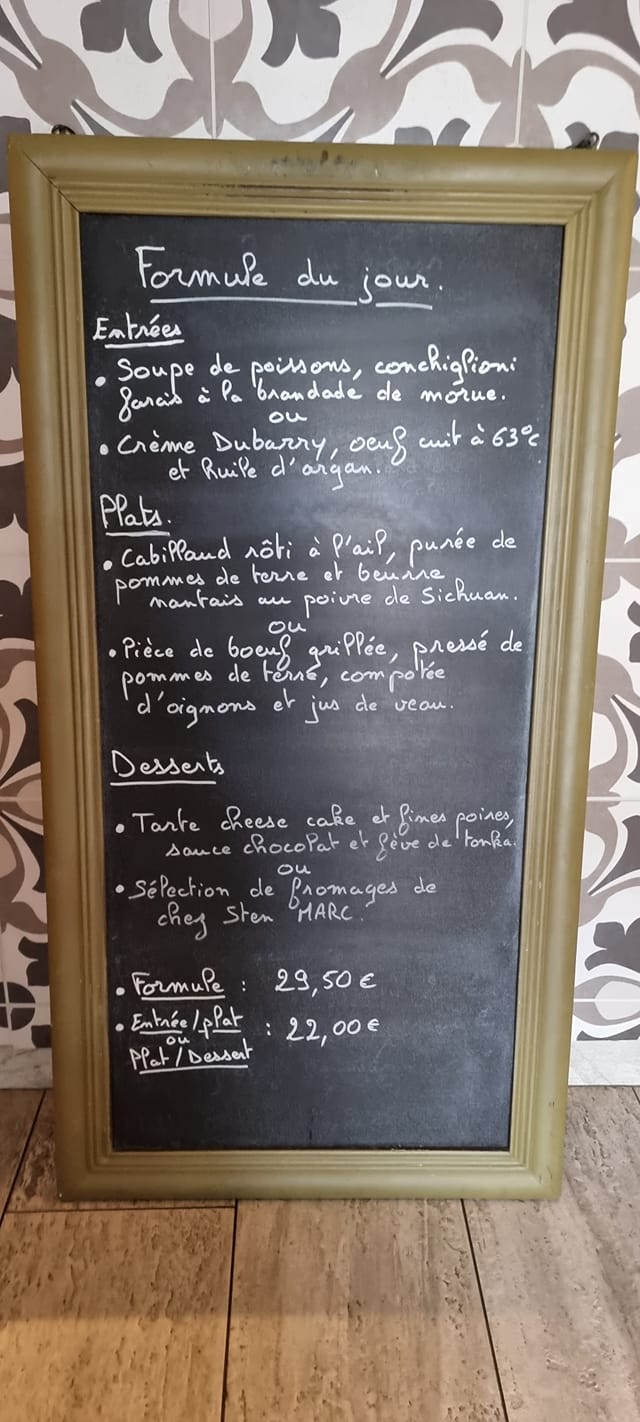 Formule du jour.
Entrées
• Soupe de poissons, conchiglioni
farcis à la brandade de morue.
ou
• Crème Dubarry, oeuf cuit à 63°c
et huile d'argan.
Plats.
• Cabillaud rôti à l'ail, purée de
pommes de terre et beurre
nantais au poivre de Sichuan.
ou
• Pièce de boeuf grillée, pressé de
pommes de terre, compotée
d'oignons et jus de veau.
Desserts
• Tarte cheese cake et fines poires,
sauce chocolat et fève de tonka.
ou
• Sélection de fromages de
chez Sten MARC.
• Formule : 29,50 €
• Entrée/plat : 22,00 €
ou
Plat/Dessert